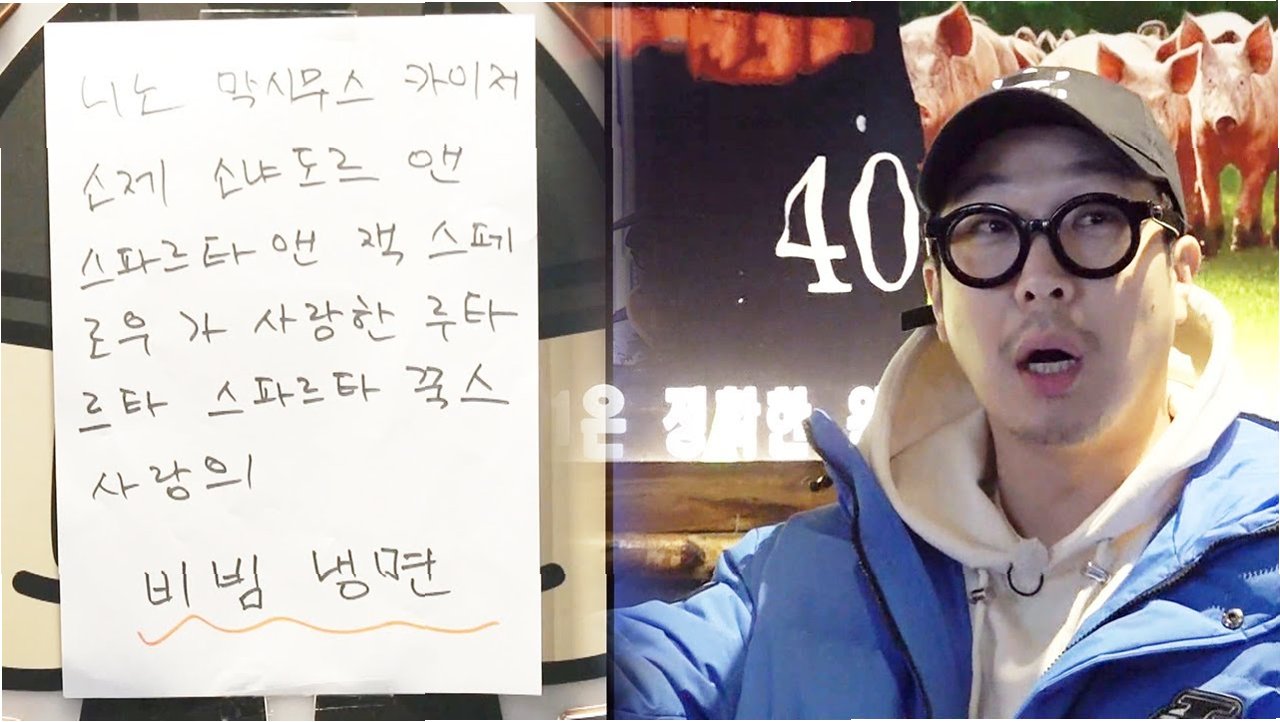 니노 막시무스 카이저
소제 소냐도르 앤
스파르타앤 잭 스페
로우 가 사랑한 루타
르타 스파르타 꾹스
사랑의
비빔 냉면
40
은 정확한